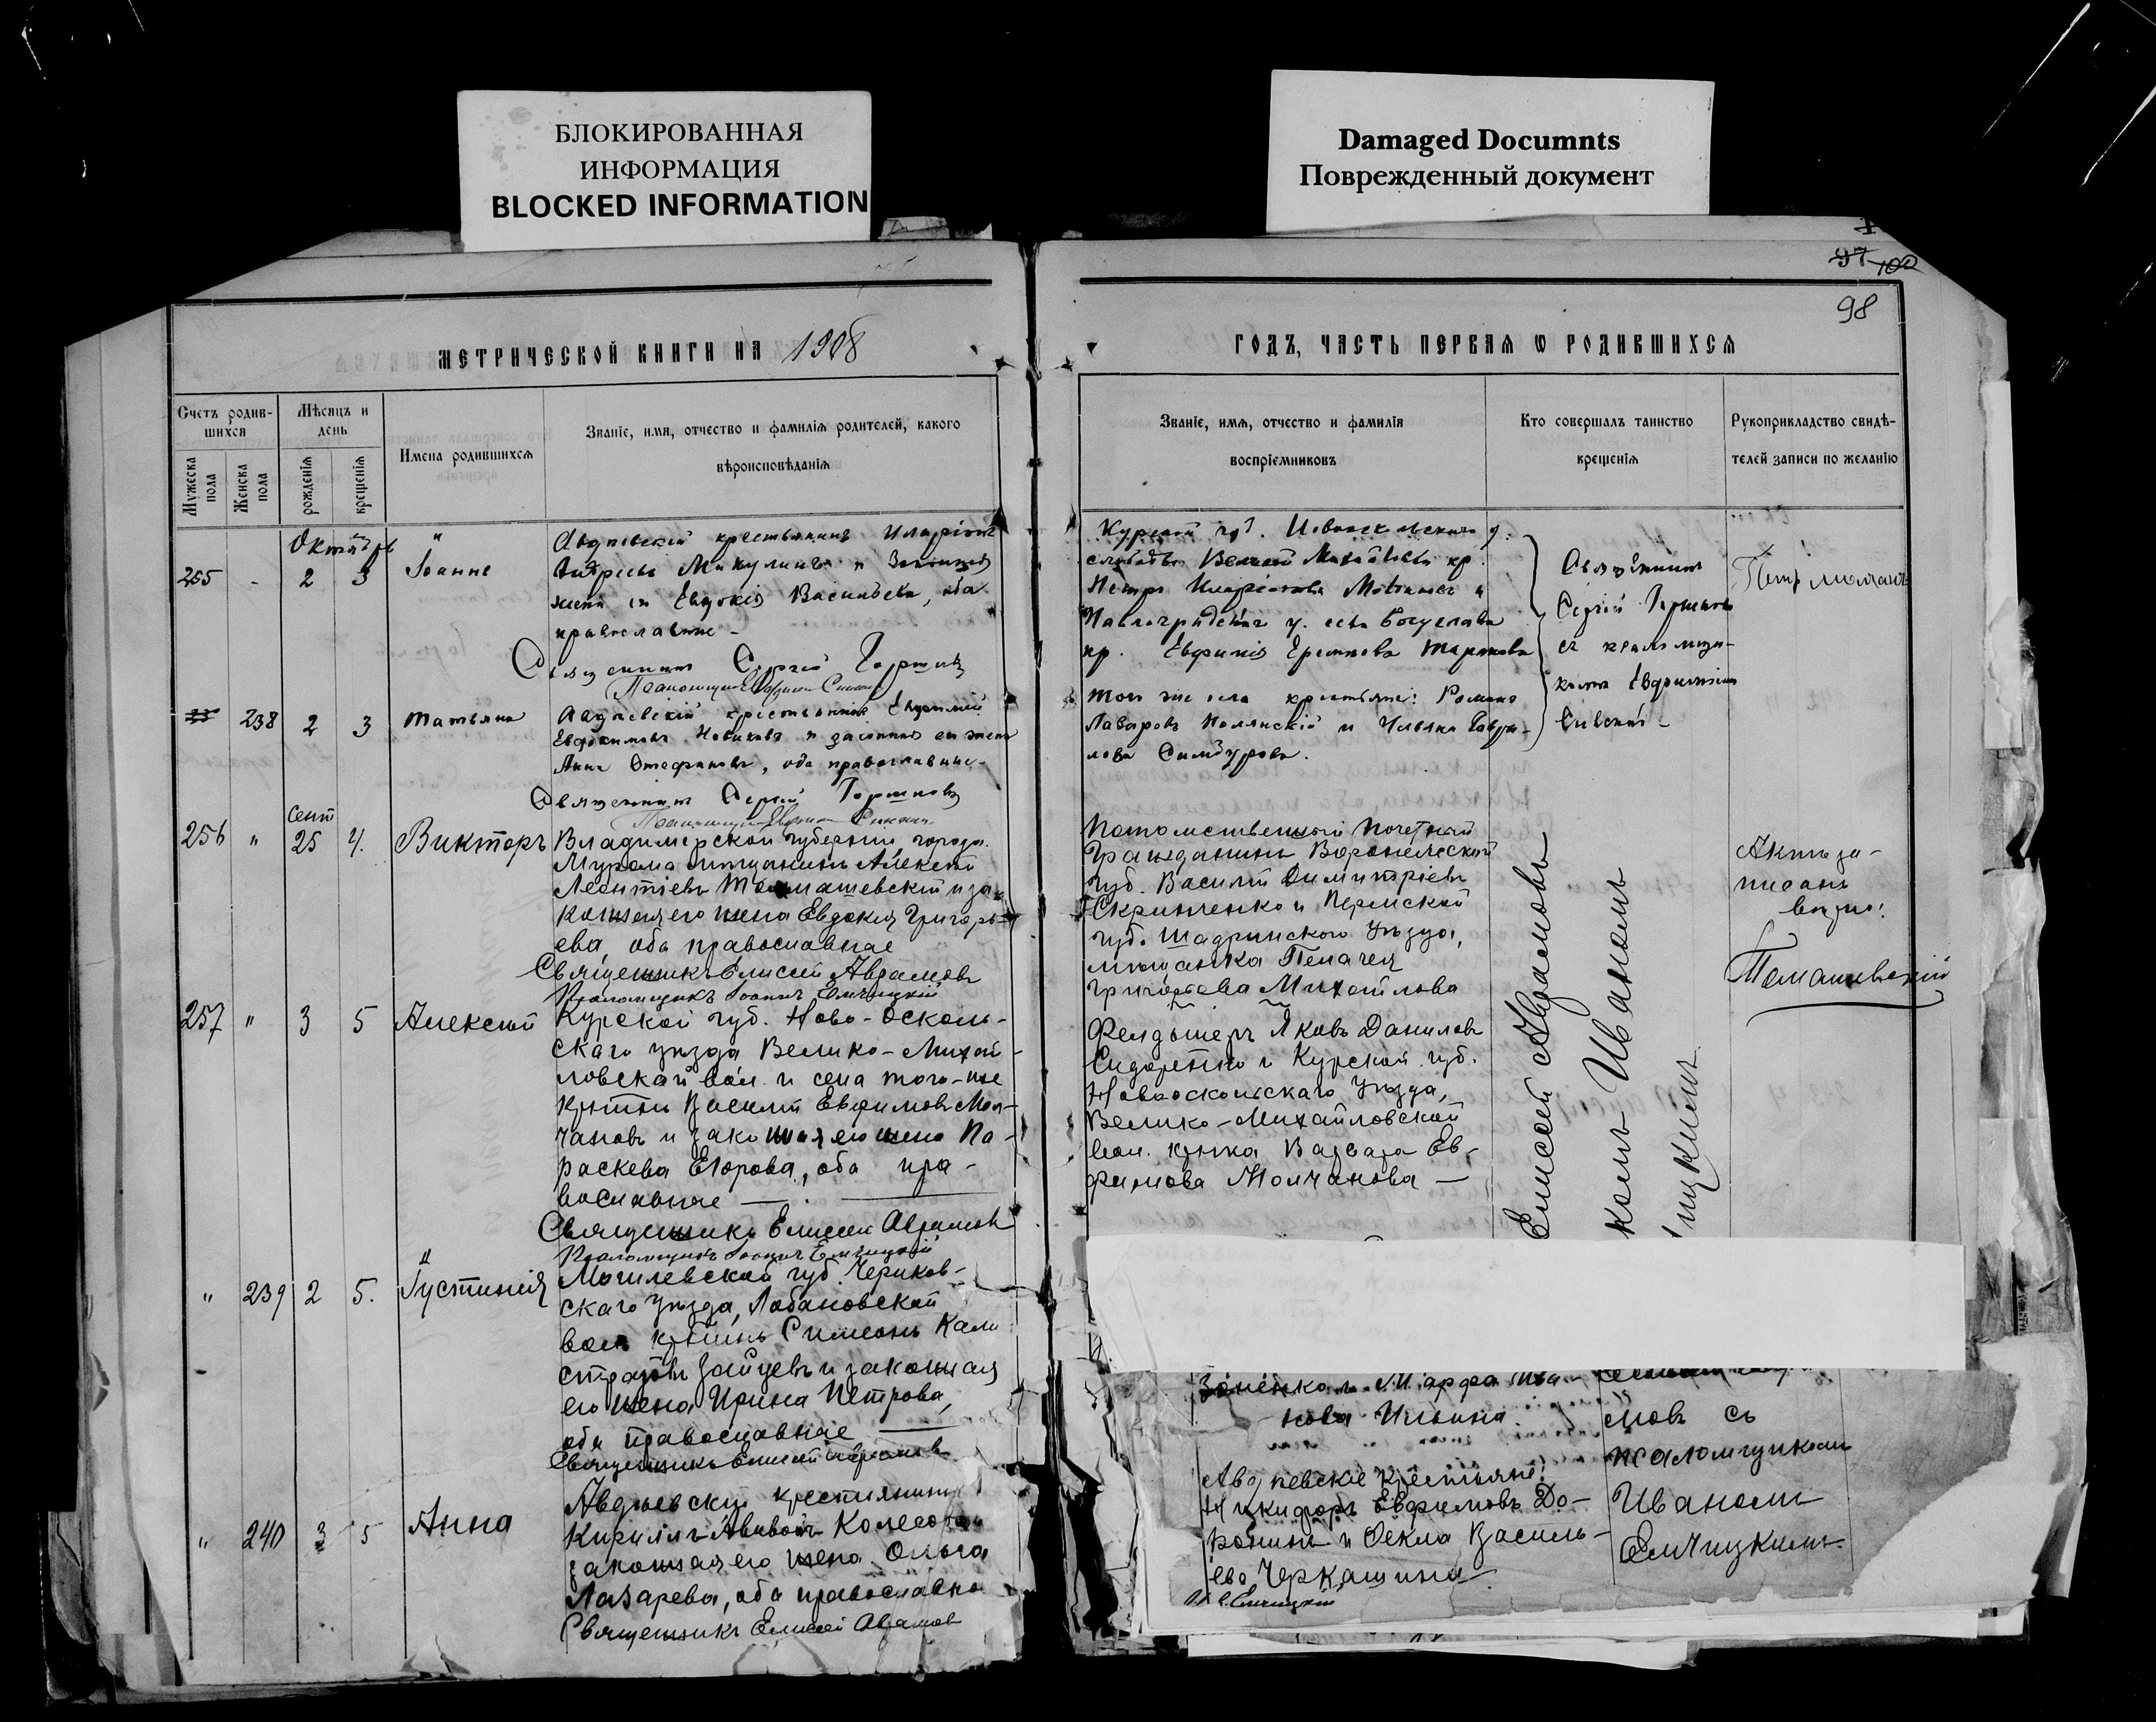 БЛОКИРОВАННАЯ
ИНФОРМАЦИЯ
BLOCKED INFORMATION
Damaged Documnts
Поврежденный документ
97 100
98
МЕТРИЧЕСКОЙ КНИГИ НА 1908
Счетъ родив-
шихся
Мѣсяцъ и
день
Мужеска
пола
Женска
пола
рожденія
крещенія
Имена родившихся
Званіе, имя, отчество и фамилія родителей, какого
вѣроисповѣданія
Октябрь
255 - 2 3
Іоанне
Авдѣевскій крестьянинъ Иларіонъ
Андреевъ Микулинъ и Законная
жена его Евдокія Васильева, оба
православные -
Священникъ Сергій Горшковъ
238 2 3 Татьяна
Авдѣевскій крестьянинъ Евфимій
Евдокимовъ Новиковъ и законная его жена
Анна Стефанова, оба православные -
Священникъ Сергій Горшковъ
сент
256 " 25 4. Викторъ
Владимерской губерніи, города
Мурома мѣщанинъ Алексѣй
Леонтіевъ Томашевскій и за-
конная его жена Евдокія Григорь-
ева, оба православные
Священникъ Елисей Аврамовъ
Псаломщикъ Іоаннъ Емчицкій
257 " 3 5 Алексѣй
Курской губ. Ново-Осколь-
скаго уѣзда Велико-Михай-
ловской вол. и села того-же
кр–тнъ Василій Евфимовъ Мол-
чановъ и законная его жена Па-
раскева Егорова, оба пра-
вославные
Священникъ Елисей Аврамовъ
Псаломщикъ Іоаннъ Емчицкій
" 239 2 5. Іустинія
Могилевской губ. Чериков-
скаго уѣзда, Лобановской
вол. Симеонъ Кали
стратовъ Зайцевъ и законная
его жена Ирина Петрова,
оба православные
Священникъ Елисей Аврамовъ
" 240 3 5 Анна
Авдѣевскій крестьянинъ
Кириллъ
законная его жена Ольга
Лазарева, оба православные
Священникъ Елисей Аврамовъ
ГОДЪ, ЧАСТЬ ПЕРВАЯ Ѡ РОДИВШИХСЯ
Званіе, имя, отчество и фамилія
воспріемниковъ
Кто совершалъ таинство
крещенія
Рукоприкладство свидѣ-
телей записи по желанію
Курской губ. Новооскольскаго у.
слободы Великой Михайловки кр.
Петръ Иларіоновъ и
Павлоградскаго у. села Богуслава
кр. Евфимія
того же села крестьяне: Романъ
Лазаревъ Полянскій и Ульяна Гаври-
лова
Священникъ
Сергій Горшковъ
съ псаломщи-
комъ Евфиміемъ
Потомственный Почетный
Гражданинъ Воронежской
губ. Василій Димитріевъ
Скрипченко и Пермской
губ. Шадринскаго уѣзда,
мѣщанка Пелагея
Григорьева Михайлова
Фелдшеръ Яковъ Даниловъ
Сидоренко и Курской губ.
Новооскольскаго уѣзда,
Велико-Михайловской
вол. кр–нка Варвара Ев-
фимова Молчанова
Елисей Аврамовъ
комъ Иваномъ
Актъ за-
писанъ
вѣрно:
Томашевскій
Марфа Ива
нова Ильина.
Авдѣевскіе крестьяне:
Никифоръ Евфимовъ До-
ронинъ и Ѳекла Василь-
ева Черкашина
мовъ съ
псаломщикомъ
Иваномъ
Емчицкимъ.